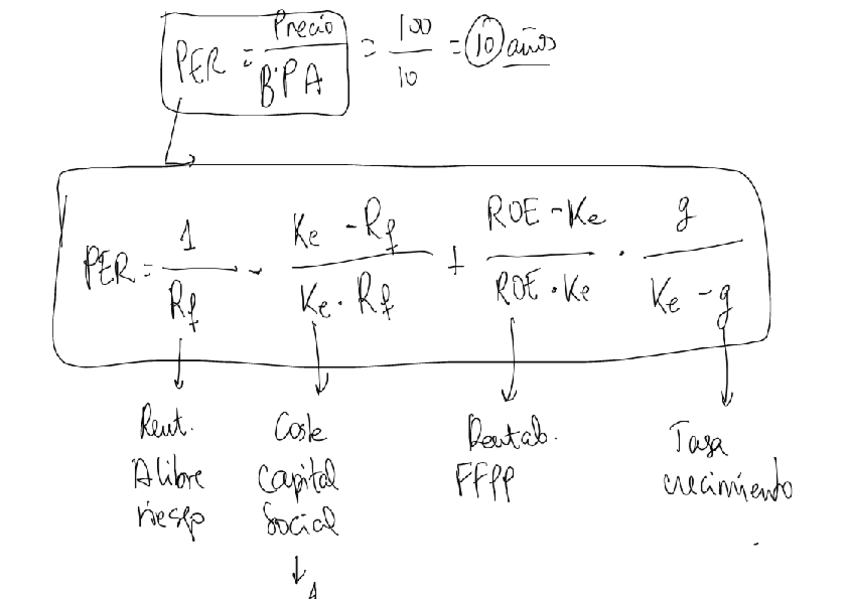 PER = Precio / BPA = 100 / 10 = 10 años
PER = 1 / Rf - Ke - Rf / Ke · Rf + ROE - Ke / ROE · Ke · g / Ke - g
Rent. A libre riesgo
Coste Capital Social
Rentab. FFPP
Tasa crecimiento